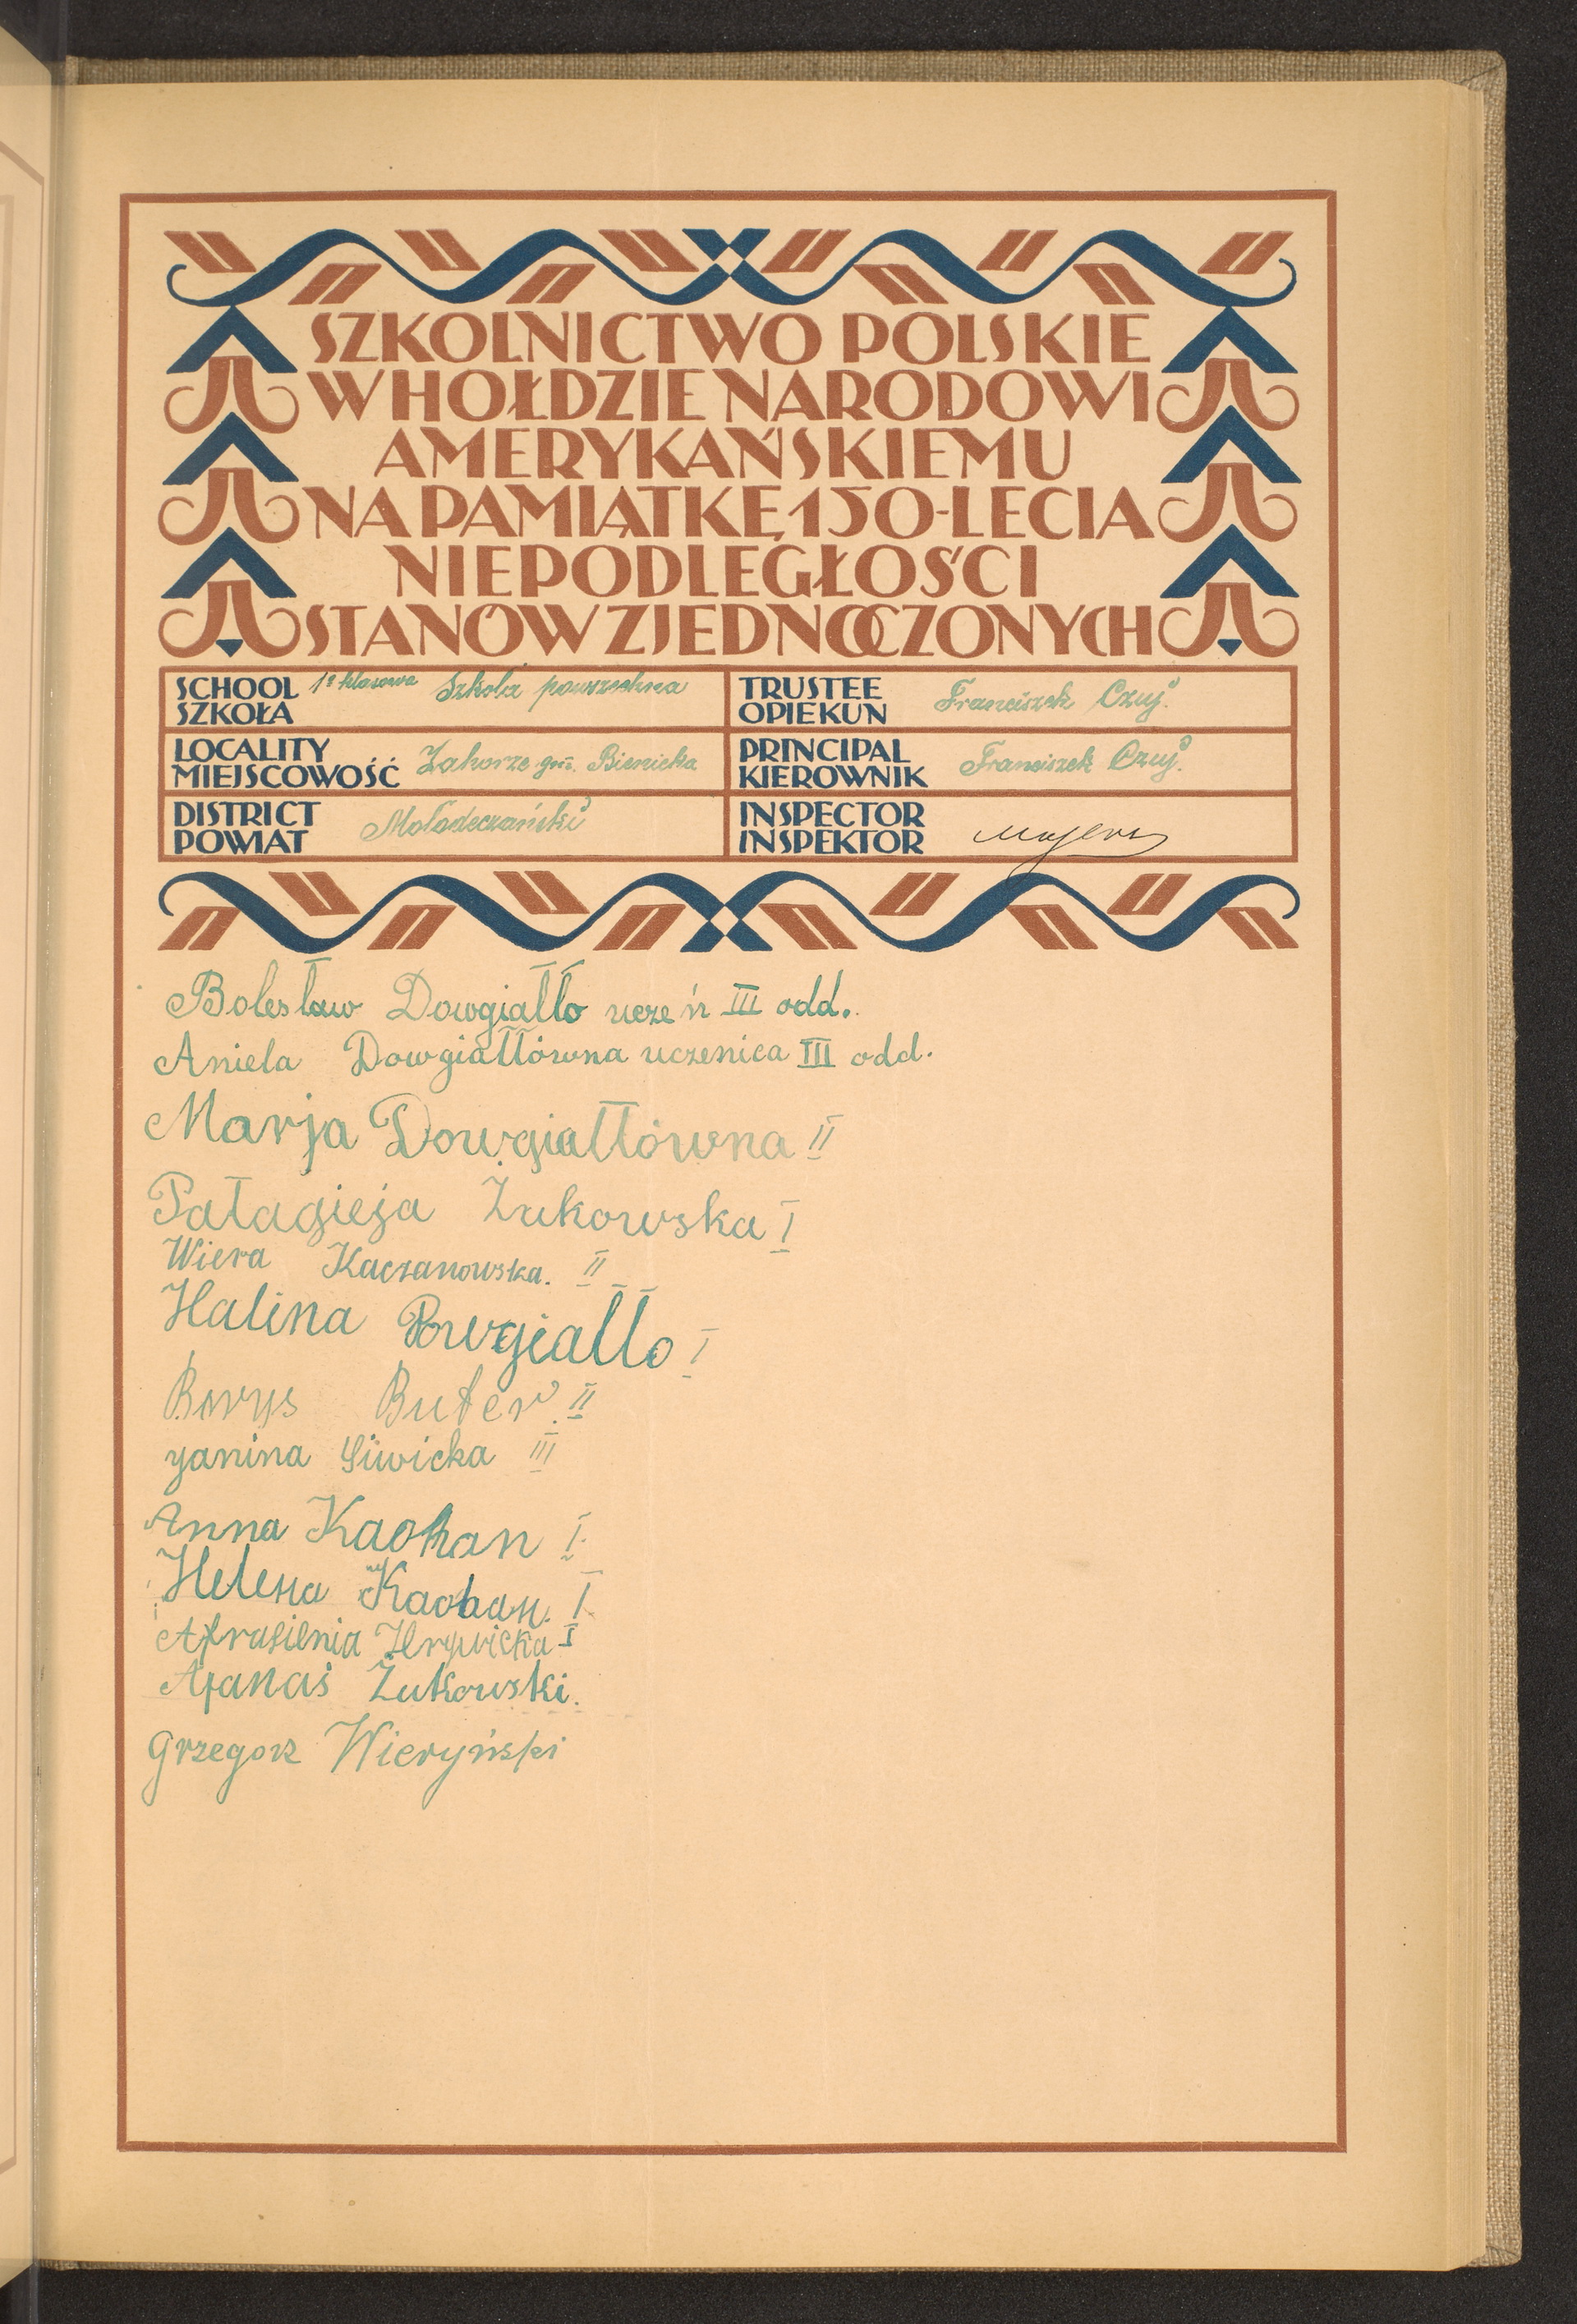 SZKOLNICTWO POLSKIE
W HOŁDZIE NARODOWI
AMERYKAŃSKIEMU
NA PAMIĄTKĘ 150-LECIA
NIEPODLEGŁOŚCI
STANÓW ZJEDNOCZONYCH
SCHOOL 1º klasowa Szkoła powszechna
SZKOŁA
TRUSTEE Franciszek Czuj.
OPIEKUN
LOCALITY Zahorze gm. Bienicka
MIEJSCOWOŚĆ
PRINCIPAL Franciszek Czuj.
KIEROWNIK
DISTRICT Mołodeczański
POWIAT
INSPECTOR
INSPEKTOR
Bolesław Dowgiałło uczeń III odd.
Aniela Dowgiałłówna uczenica III odd.
Marja Dowgiałłówna II
Pałagieja Żukowska I
Wiera Kaczanowska. II
Halina Dowgiałło I
Borys Buter. II
Janina Siwicka III
Anna Kaohan I.
Helena Kaohan. I
Afrasienia Hrywicka I
Afanaś Żukowski.
Grzegorz Wieryński